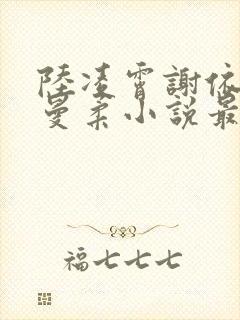 陸凌霄謝依
曼柔小說最
福七七七